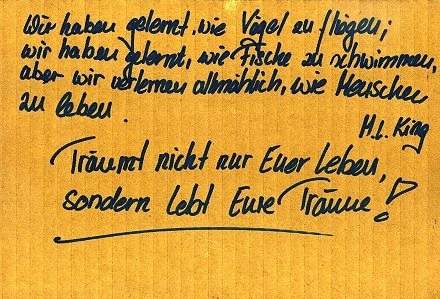 Wir haben gelernt, wie Vögel zu fliegen;
wir haben gelernt, wie Fische zu schwimmen,
aber wir verlernen allmählich, wie Menschen
zu leben.
M.L. King
Träumt nicht nur Euer Leben,
sondern lebt Eure Träume!